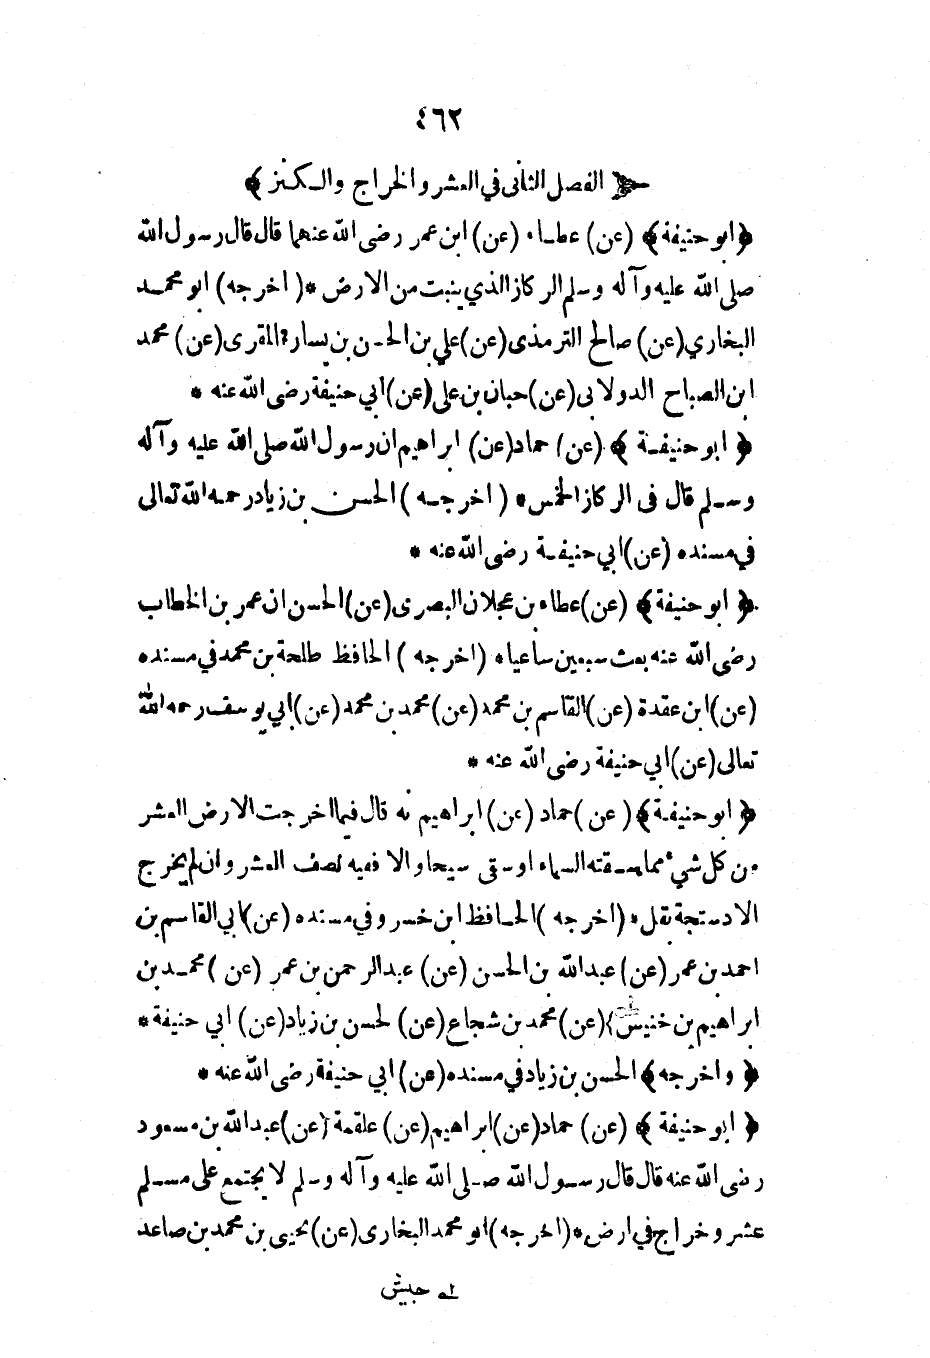 ٤٦٢
الفصل الثاني في العشر والخراج والكنز ﴾
﴿ ابو حنيفة ﴾ (عن) عطاء (عن) ابن عمر رضى الله عنهما قال قال رسول الله
صلى الله عليه وآله وسلم الركاز الذي ينبت من الارض * (اخرجه) ابو محمد
البخاري (عن) صالح الترمذى (عن) علي بن الحسن بن يسار المقرى (عن) محمد
ابن الصباح الدولابى (عن) حبان بن على (عن) أبي حنيفة رضى الله عنه *
﴿ ابو حنيفة ﴾ (عن) حماد (عن) ابراهيم ان رسول الله صلى الله عليه وآله
وسلم قال فى الركاز الخمس * (اخرجه) الحسن بن زياد رحمه الله تعالى
في مسنده (عن) ابي حنيفة رضى الله عنه *
﴿ ابو حنيفة ﴾ (عن) عطاء بن عجلان البصرى (عن) الحسن ان عمر بن الخطاب
رضى الله عنه بعث سبعين ساعيا * (اخرجه) الحافظ طلحة بن محمد في مسنده
(عن) ابن عقدة (عن) القاسم بن محمد (عن) محمد بن محمد (عن) ابي يوسف رحمه الله
تعالى (عن) ابي حنيفة رضى الله عنه *
﴿ ابو حنيفة ﴾ (عن) حماد (عن) ابراهيم انه قال فيما اخرجت الارض العشر
من كل شيء مما سقته السماء او سقى سيحا والا ففيه نصف العشر وان لم يخرج
الا دستجة بقل * (اخرجه) الحافظ ابن خسرو في مسنده (عن) ابي القاسم بن
احمد بن عمر (عن) عبدالله بن الحسن (عن) عبدالرحمن بن عمر (عن) محمد بن
ابراهيم بن خنيس (عن) محمد بن شجاع (عن) لحسن بن زياد (عن) ابي حنيفة *
﴿ واخرجه ﴾ الحسن بن زياد في مسنده (عن) ابي حنيفة رضى الله عنه *
﴿ ابو حنيفة ﴾ (عن) حماد (عن) ابراهيم (عن) علقمة (عن) عبدالله بن مسعود
رضى الله عنه قال قال رسول الله صلى الله عليه وآله وسلم لا يجتمع على مسلم
عشر وخراج في ارض * (اخرجه) ابو محمد البخارى (عن) يحيى بن محمد بن صاعد
حبيش